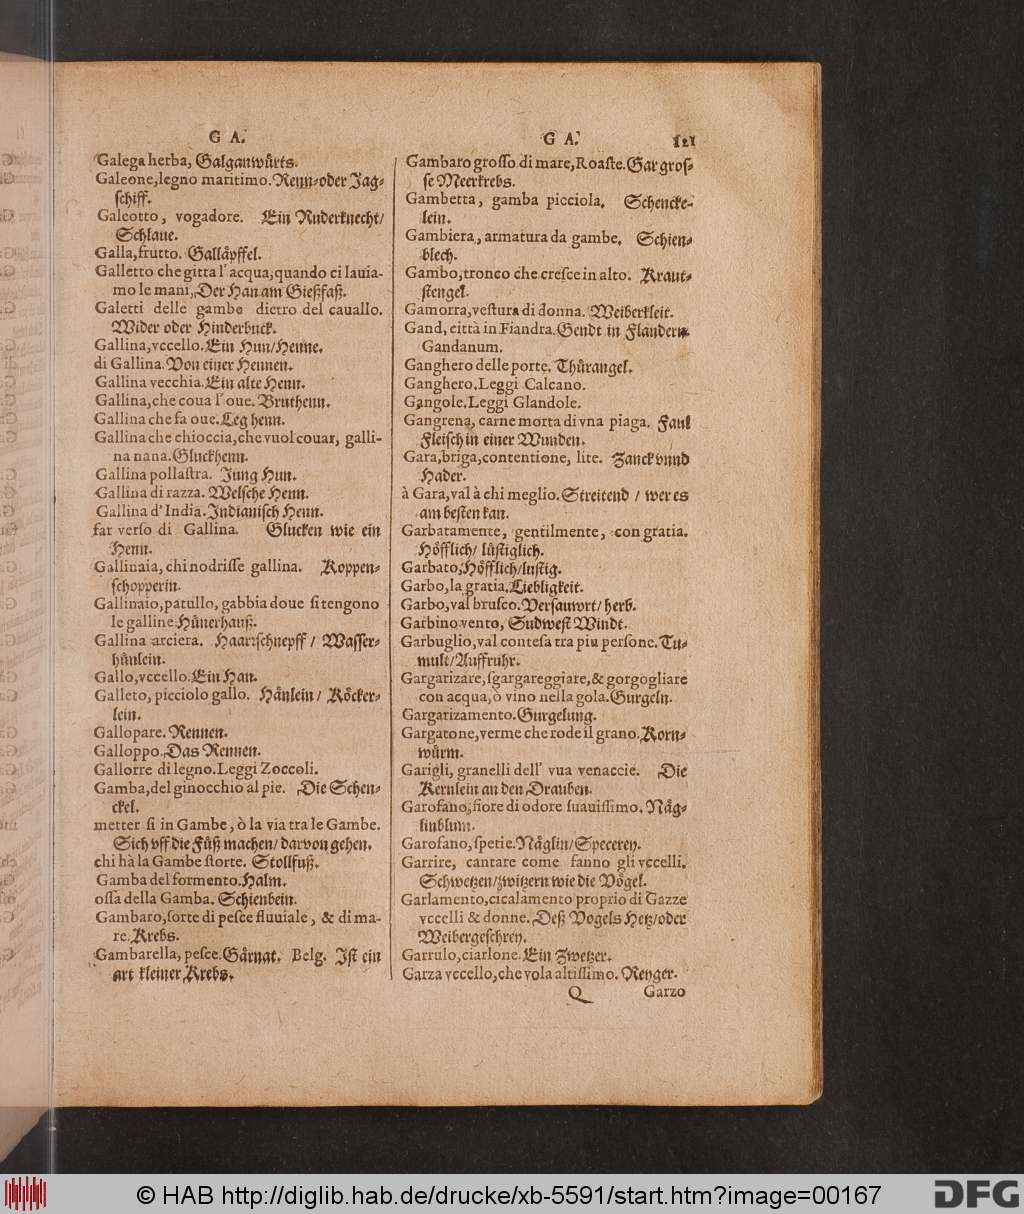 G A.
Galega herba, Galganwůrts.
Galeone, legno maritimo. Renn-oder Jag-
schiff.
Galeotto, vogadore. Ein Ruderknecht/
Schlaue.
Galla, frutto. Galläpffel.
Galletto che gitta l'acqua, quando ci lauia-
mo le mani, Der Han am Gießfaß.
Galetti delle gambe dietro del cauallo.
Wider oder Hinderbuck.
Gallina, vccello. Ein Hun/Henne.
di Gallina. Von einer Hennen.
Gallina vecchia. Ein alte Henn.
Gallina, che coua l'oue. Bruthenn.
Gallina che fa oue. Leg henn.
Gallina che chioccia, che vuol couar, galli-
na nana. Gluckhenn.
Gallina pollastra. Jung Hun.
Gallina di razza. Welsche Henn.
Gallina d'India. Indianisch Henn.
far verso di Gallina. Glucken wie ein
Henn.
Gallinaia, chi nodrisse gallina. Koppen-
schopperin.
Gallinaio, patullo, gabbia doue si tengono
le galline. Hůnerhauß.
Gallina arciera. Haarschnepff / Wasser-
hůnlein.
Gallo, vccello. Ein Han.
Galleto, picciolo gallo. Hånlein / Röcker-
lein.
Gallopare. Rennen.
Galloppo. Das Rennen.
Gallorre di legno. Leggi Zoccoli.
Gamba, del ginocchio al pie. Die Schen-
ckel.
metter si in Gambe, ò la via tra le Gambe.
Sich vff die Füß machen/ darvon gehen.
chi hà la Gambe storte. Stollfuß.
Gamba del formento. Halm.
ossa della Gamba. Schienbein.
Gambaro, sorte di pesce fluuiale, & di ma-
re. Krebs.
Gambarella, pesce. Gårnat. Belg. Ist ein
art kleiner Krebs.
G A. 121
Gambaro grosso di mare, Roaste. Gar gros-
se Meerkrebs.
Gambetta, gamba picciola. Schencke-
lein.
Gambiera, armatura da gambe. Schien-
blech.
Gambo, tronco che cresce in alto. Kraut-
stengel.
Gamorra, vestura di donna. Weiberkleit.
Gand, città in Fiandra. Gendt in Flandern.
Gandanum.
Ganghero delle porte. Thůrangel.
Ganghero. Leggi Calcano.
Gangole. Leggi Glandole.
Gangrena, carne morta di vna piaga. Faul
Fleisch in einer Wunden.
Gara, briga, contentione, lite. Zanck vnnd
Hader.
à Gara, val à chi meglio. Streitend / wer es
am besten kan.
Garbatamente, gentilmente, con gratia.
Höfflich/ lůstiglich.
Garbato. Höfflich/lustig.
Garbo, la gratia. Liebligkeit.
Garbo, val brusco. Versauwrt/ herb.
Garbino vento, Sudwest Windt.
Garbuglio, val contesa tra piu persone. Tu-
mult/Auffruhr.
Gargarizare, sgargareggiare, & gorgogliare
con acqua, ò vino nella gola. Gurgeln.
Gargarizamento. Gurgelung.
Gargatone, verme che rode il grano. Korn-
wůrm.
Garigli, granelli dell' vua venaccie. Die
Kernlein an den Drauben.
Garofano, fiore di odore suauissimo. Någ-
linblum.
Garofano, spetie. Någlin/Specerey.
Garrire, cantare come fanno gli vccelli.
Schwetzen/zwitzern wie die Vögel.
Garlamento, cicalamento proprio di Gazze
vccelli & donne. Deß Vogels Hetz/oder
Weibergeschrey.
Garrulo, ciarlone. Ein Zwetzer.
Garza vccello, che vola altissimo. Reyger.
Q Garzo
© HAB http://diglib.hab.de/drucke/xb-5591/start.htm?image=00167
DFG